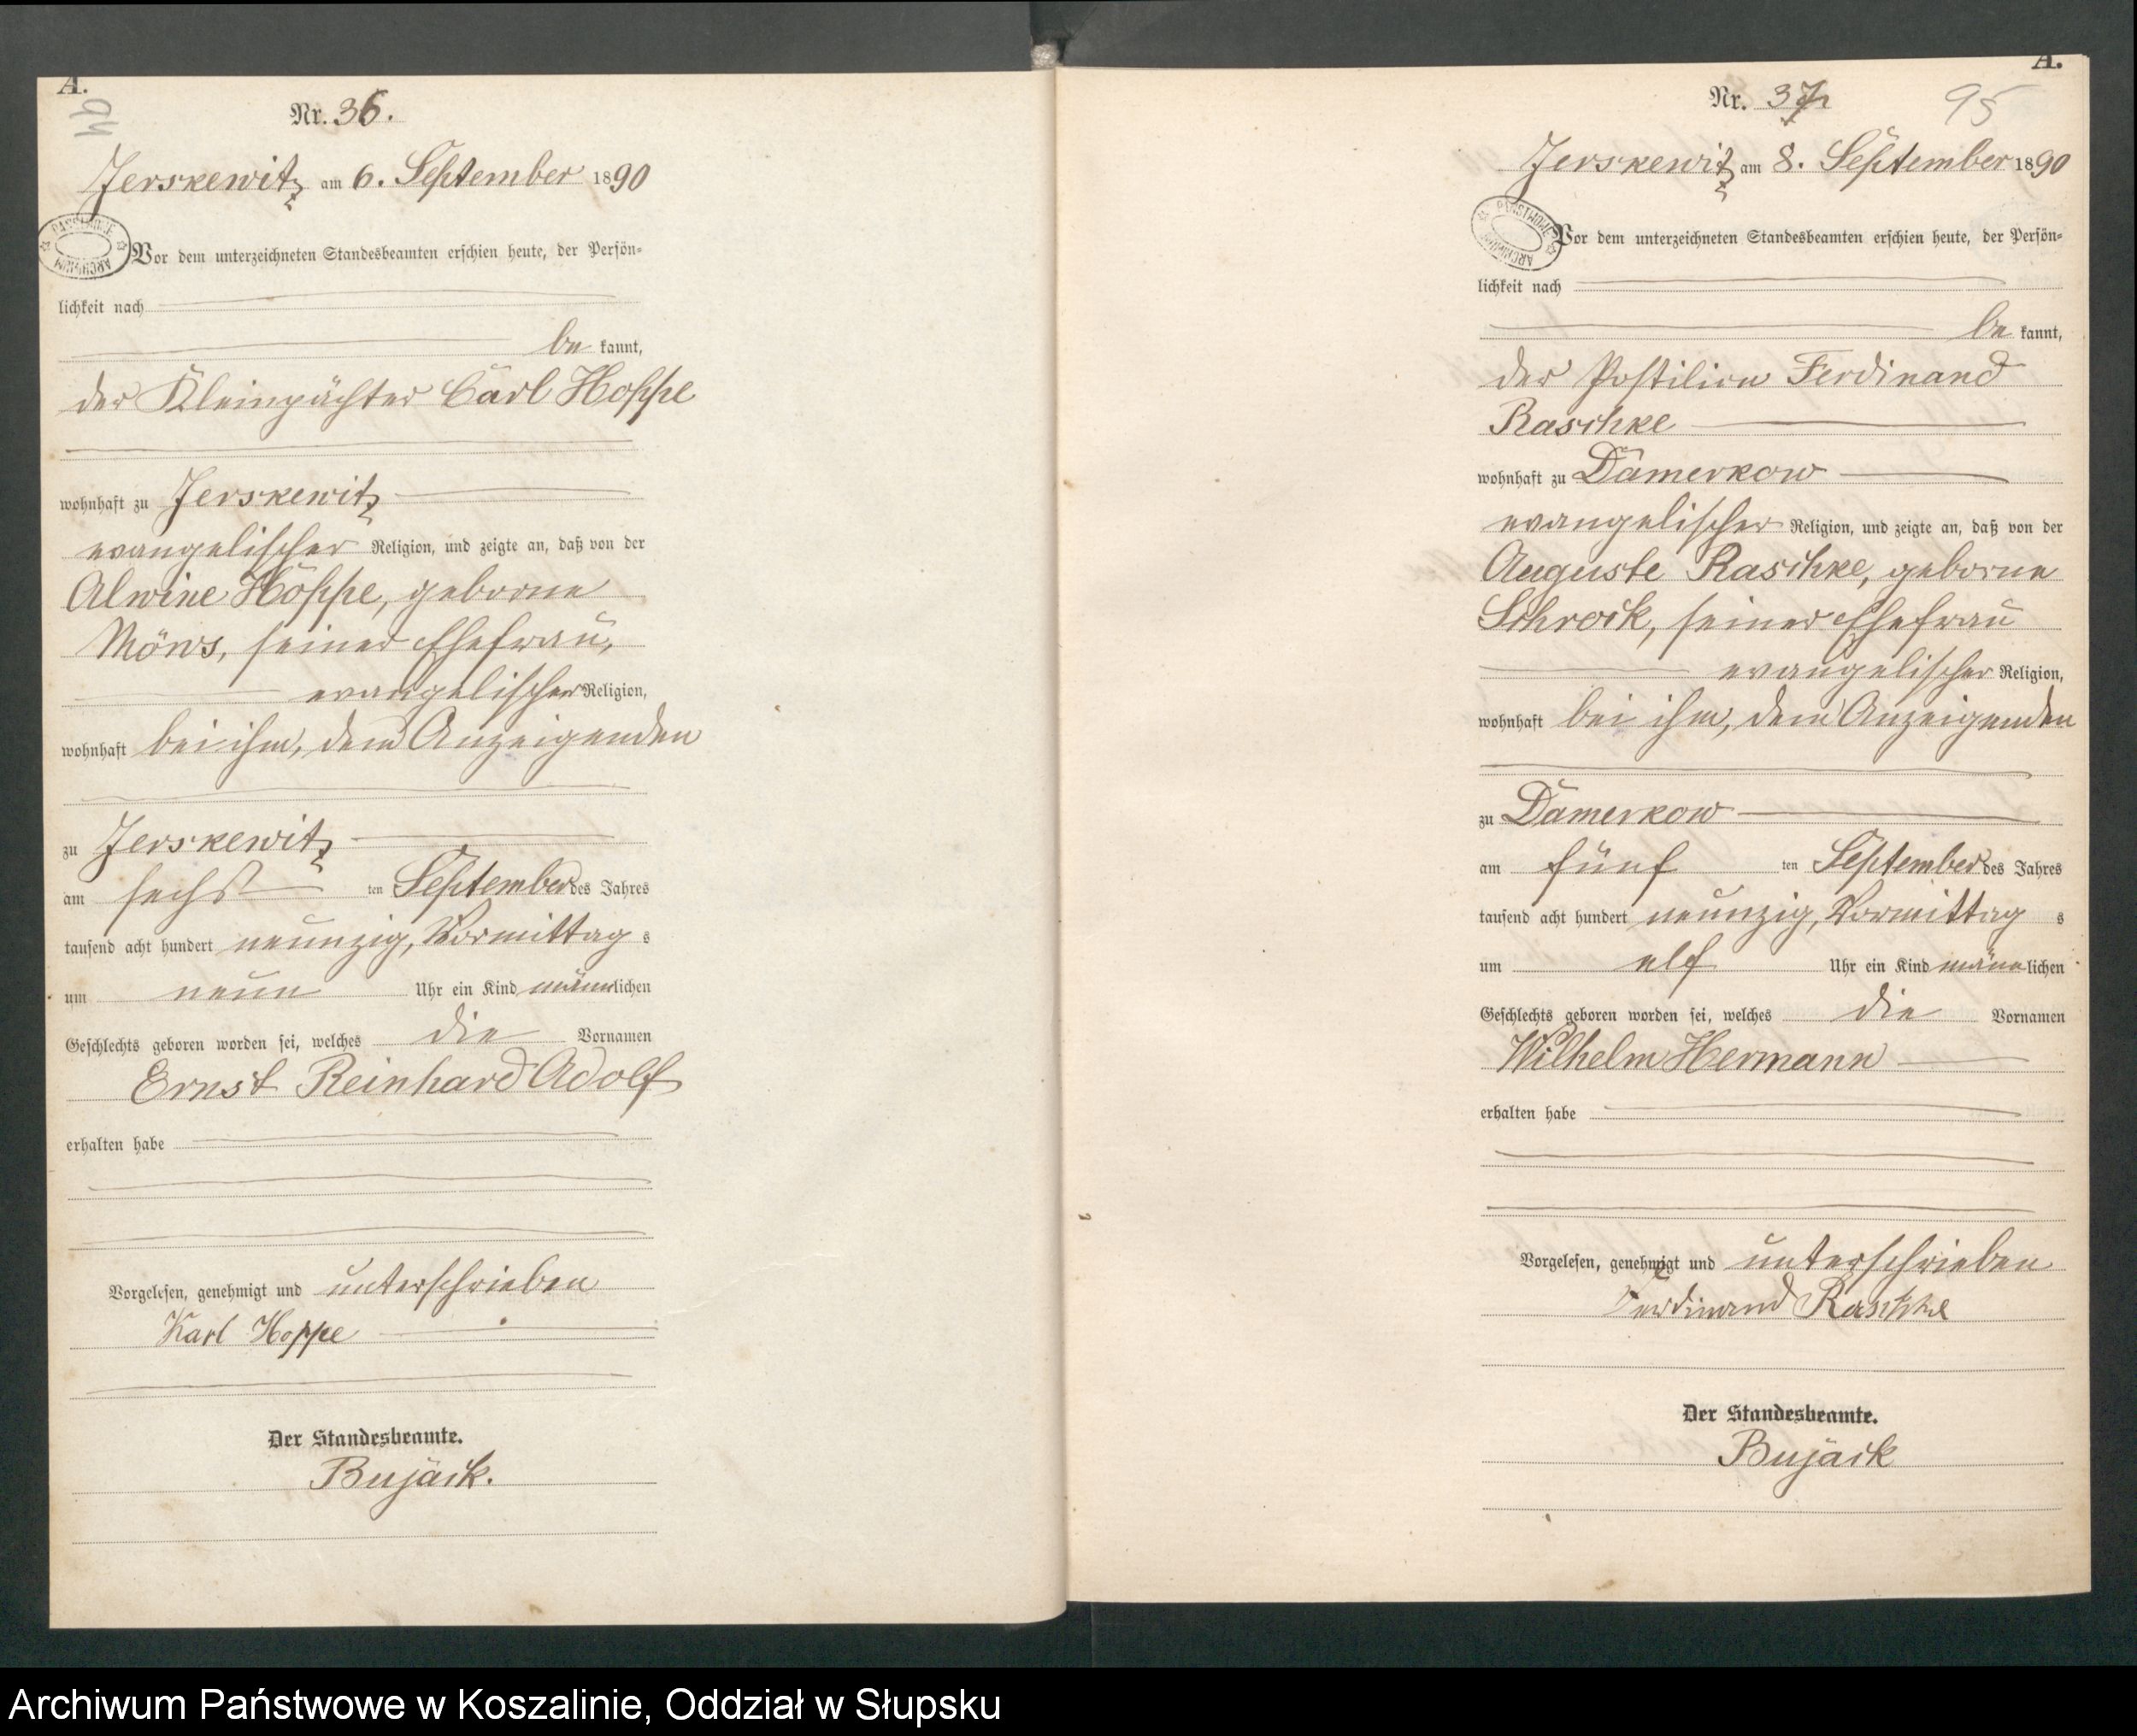 A.
Nr. 36.
Jerskewitz am 6. September 1890
Vor dem unterzeichneten Standesbeamten erschien heute, der Persön-
lichkeit nach
be kannt,
der Kleinpächter Carl Hoppe
wohnhaft zu Jerskewitz
evangelischer Religion, und zeigte an, daß von der
Alwine Hoppe, geborne
Möws, seiner Ehefrau,
evangelischer Religion,
wohnhaft bei ihm, dem Anzeigenden
zu Jerskewitz
am sechst ten September des Jahres
tausend acht hundert neunzig, Vormittag s
um neun Uhr ein Kind männlichen
Geschlechts geboren worden sei, welches die Vornamen
Ernst Reinhard Adolf
erhalten habe
Vorgelesen, genehmigt und unterschrieben
Karl Hoppe
Der Standesbeamte.
Bujack.
A.
Nr. 37
95
Jerskewitz am 8. September 1890
Vor dem unterzeichneten Standesbeamten erschien heute, der Persön-
lichkeit nach
be kannt,
der Postilion Ferdinand
Raschke
wohnhaft zu Damerkow
evangelischer Religion, und zeigte an, daß von der
Auguste Raschke, geborne
Schrock, seiner Ehefrau
evangelischer Religion,
wohnhaft bei ihm, dem Anzeigenden
zu Damerkow
am fünf ten September des Jahres
tausend acht hundert neunzig, Vormittag s
um elf Uhr ein Kind männlichen
Geschlechts geboren worden sei, welches die Vornamen
Wilhelm Hermann
erhalten habe
Vorgelesen, genehmigt und unterschrieben
Ferdinand Raschke
Der Standesbeamte.
Bujack
Archiwum Państwowe w Koszalinie, Oddział w Słupsku